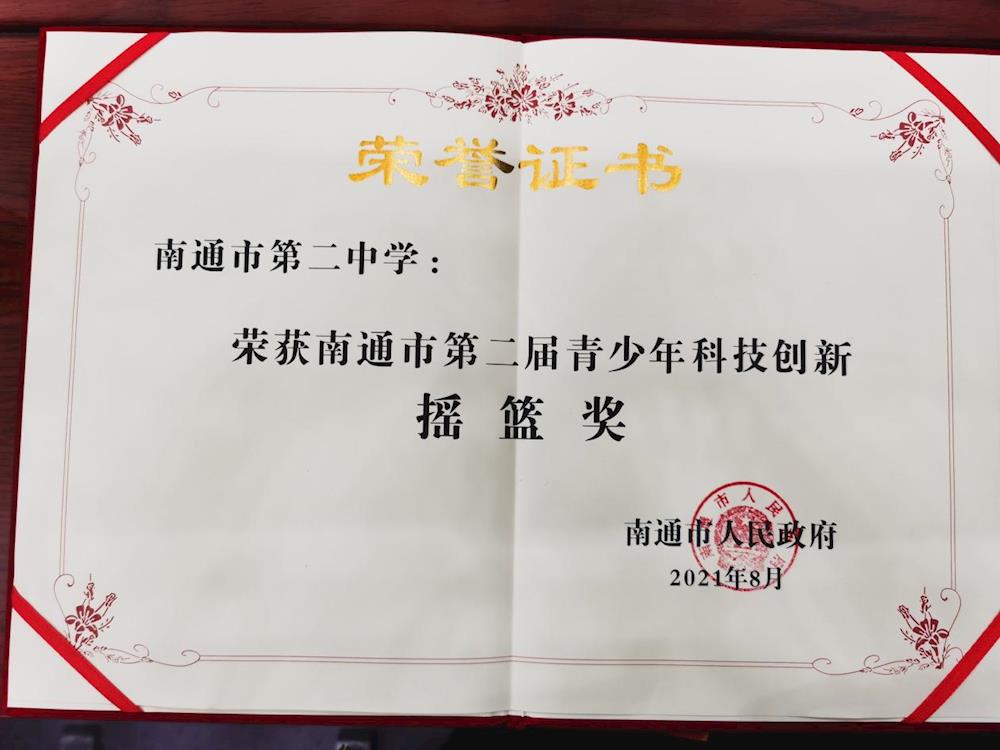 荣誉证书
南通市第二中学：
荣获南通市第二届青少年科技创新
摇篮奖
南通市人民政府
2021年8月